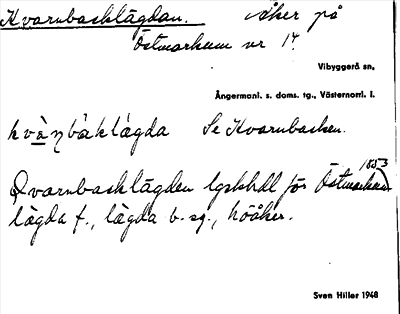 Kvarnbacklägdan. Åker på
Östmarkum nr 14
Vibyggerå sn,
Ångermanl. s. doms. tg., Västernorrl. l.
kvàṇbàklägda Se Kvarnbacken.
1853
Qvarnbacklägden lgskhdl för Östmarkum
lägda f., lägda b. sg., höåker.
Sven Hiller 1948